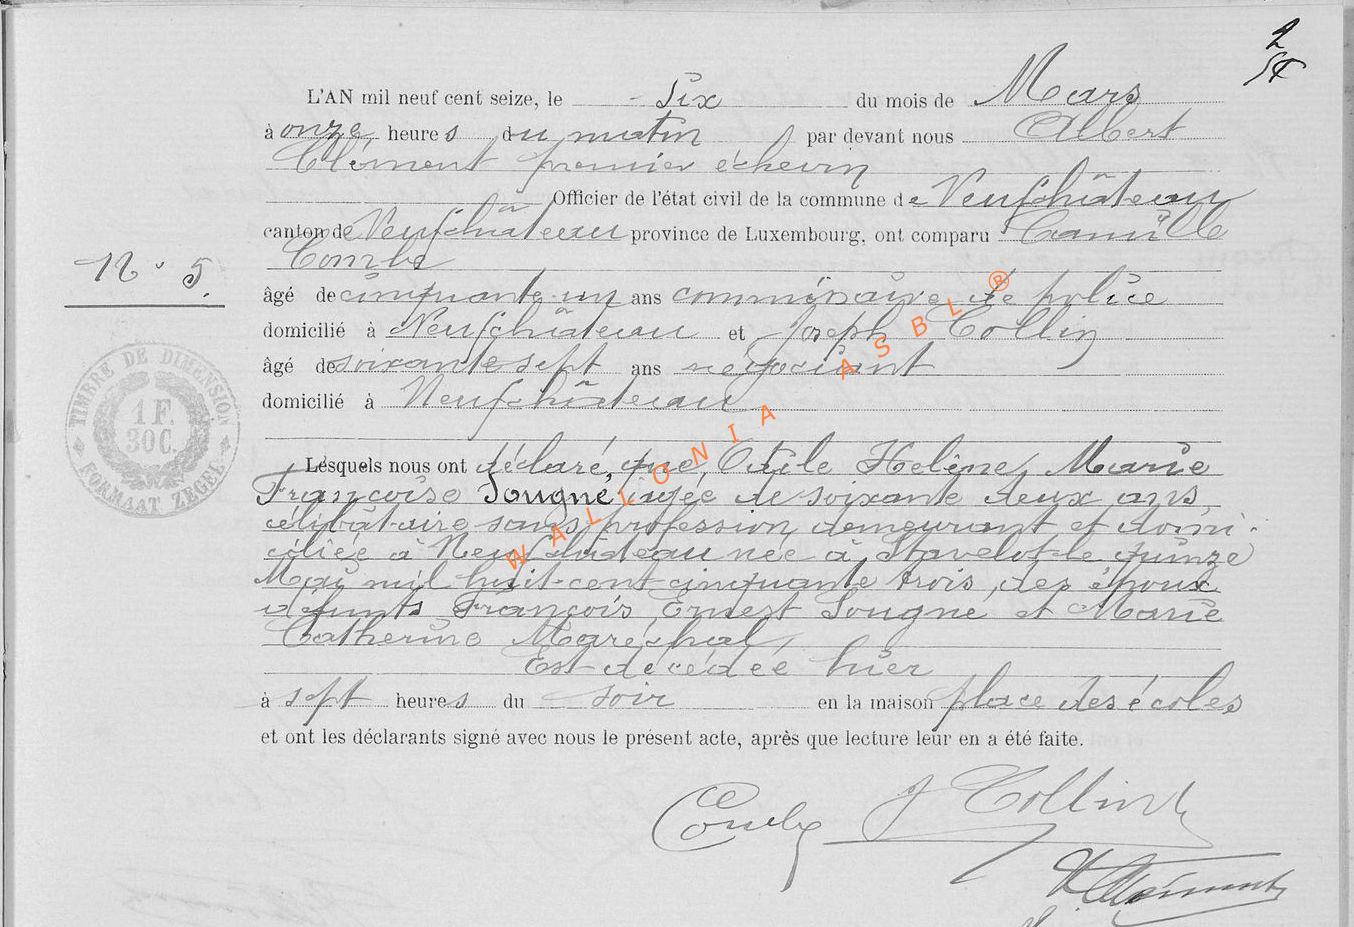 2
L'AN mil neuf cent seize, le Six du mois de Mars
à onze heures du matin par devant nous Albert
Clément premier échevin
Officier de l'état civil de la commune de Neufchâteau
canton de Neufchâteau province de Luxembourg, ont comparu Camille
Combe
N° 5.
âgé de cinquante un ans commissaire de police
domicilié à Neufchâteau et Joseph Collin
âgé de soixante sept ans negociant
domicilié à Neufchâteau
TIMBRE DE DIMENSION
1 F.
30 C.
FORMAAT ZEGEL
Lesquels nous ont déclaré, que, Otile Helène, Marie
Françoise Sougné, agée de soixante deux ans,
célibataire sans profession, demeurant et domi-
ciliée à Neufchâteau née à Stavelot le quinze
Mai mil huit-cent cinquante trois, des époux
défunts François, Ernest Sougné et Marie
Catherine Maréchal,
Est décédée hier
à sept heures du soir en la maison place des écoles
et ont les déclarants signé avec nous le présent acte, après que lecture leur en a été faite.
Combe J Collin
A Clément
WALLONIA ASBL ®